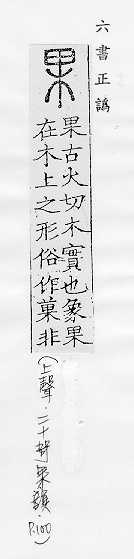 六書正譌
果古火切木實也象果
在木上之形俗作菓非
(上聲·二十哿果韻·P.100)